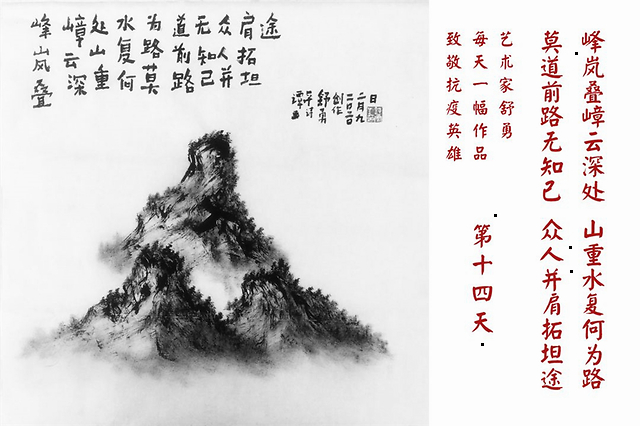 峰岚叠
嶂云深
处山重
水复何
为路莫
道前路
无知己
众人并
肩拓坦
途
舒勇
创作
二〇二〇
二月九
日
峰岚叠嶂云深处 山重水复何为路
莫道前路无知己 众人并肩拓坦途
艺术家舒勇
每天一幅作品
致敬抗疫英雄
第十四天